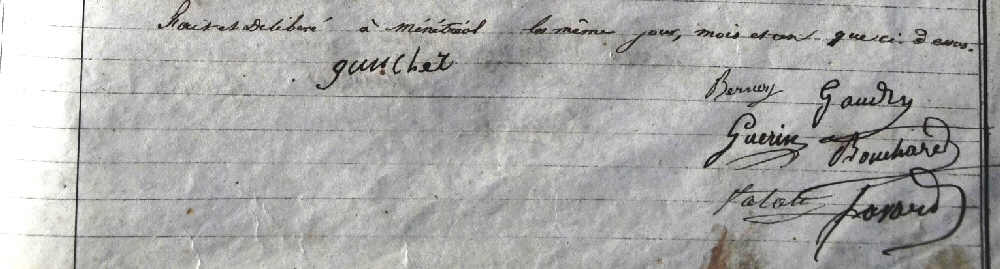 Fait et délibéré à Ménétréol les même jour, mois et an que ci-dessus.
gauchet
Bernoy Gaudry
Guerin Bouchard